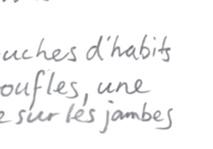 uches d'habits
oufles, une
e sur les jambes